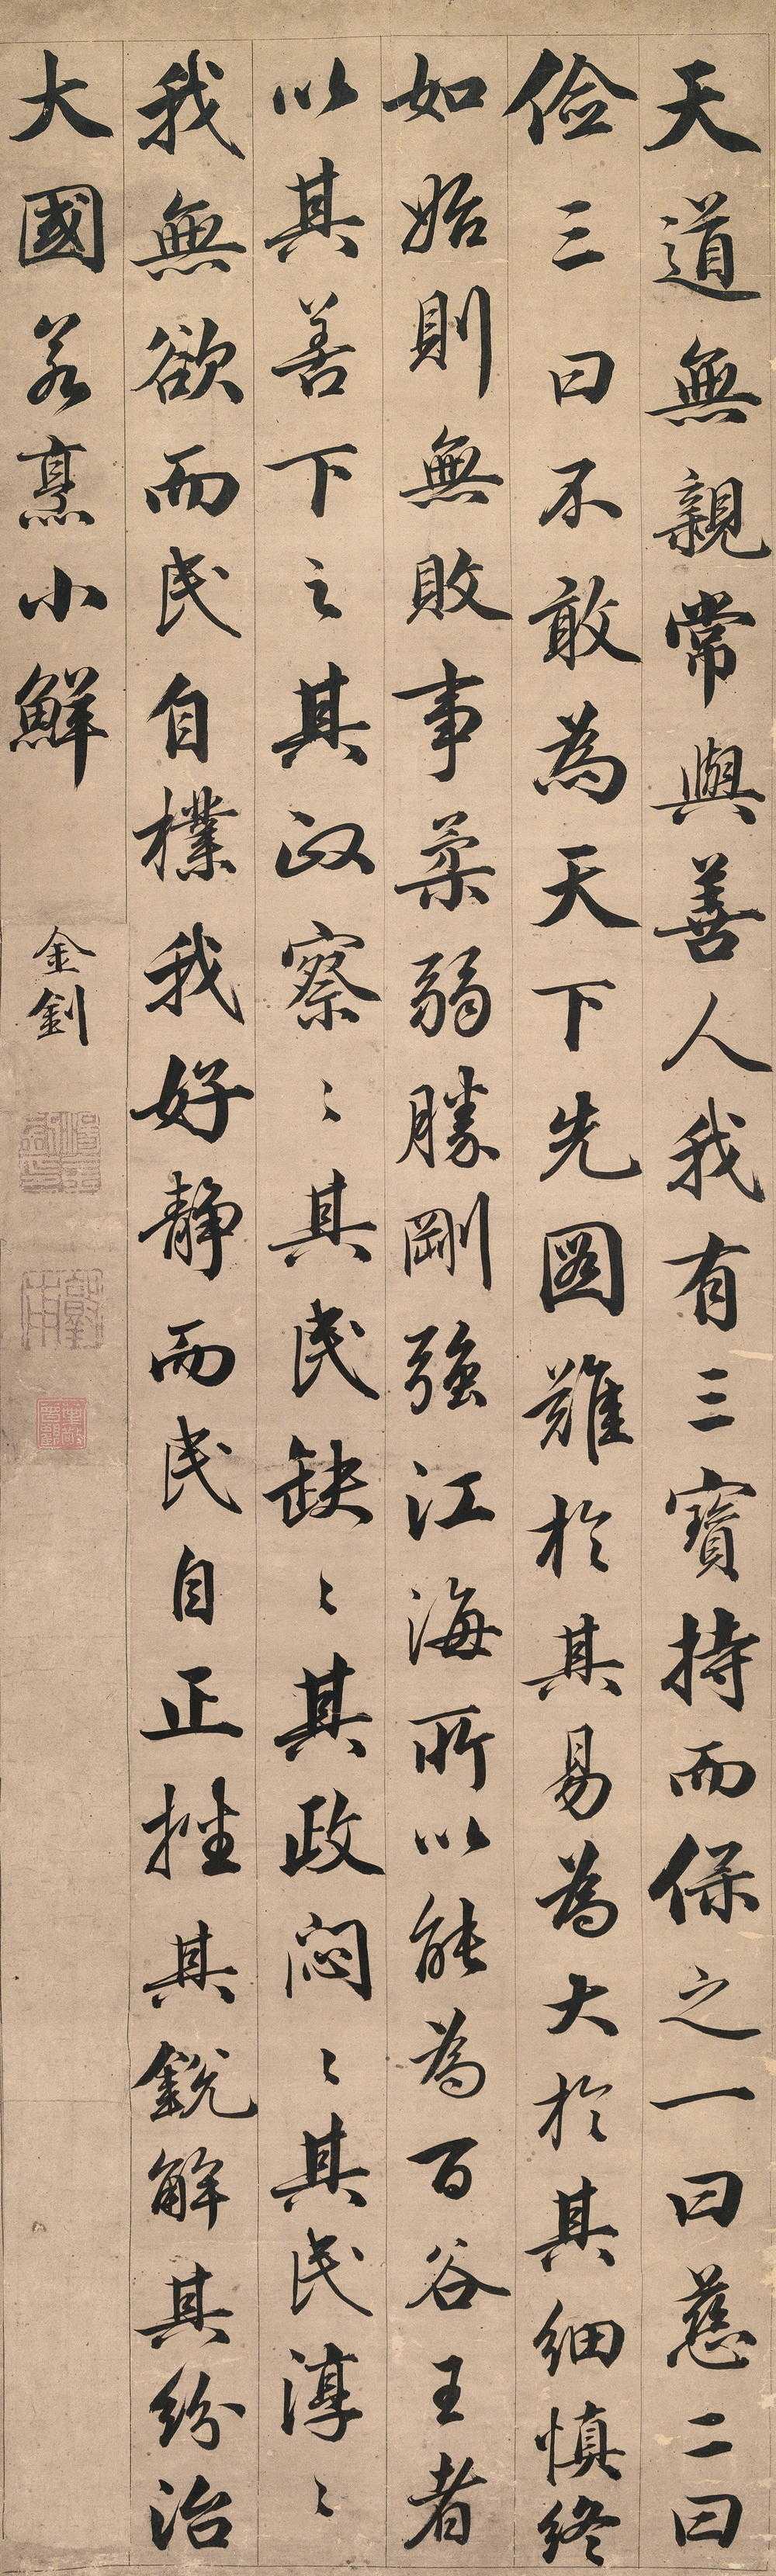 天道無親常與善人我有三寶持而保之一曰慈二曰
儉三曰不敢為天下先圖難於其易為大於其細慎終
如始則無敗事柔弱勝剛強江海所以能為百谷王者
以其善下之其政察〻其民缺〻其政悶〻其民淳〻
我無欲而民自樸我好靜而民自正挫其銳解其紛治
大國若烹小鮮
金釗